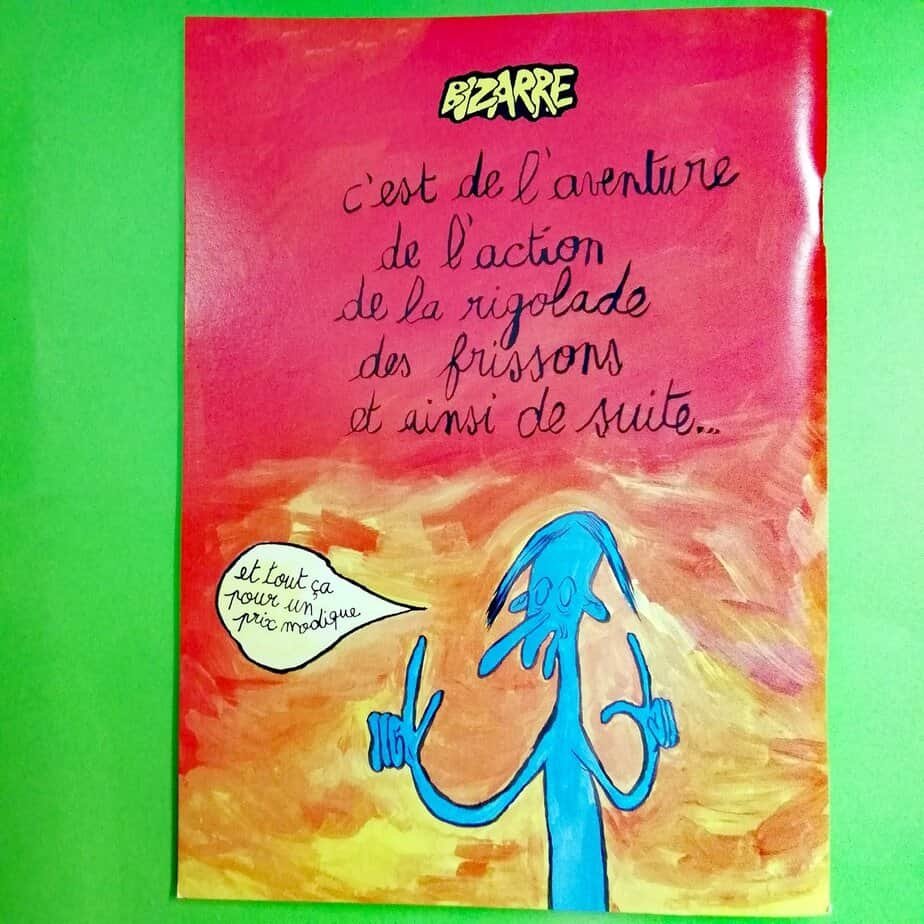 BIZARRE
c'est de l'aventure
de l'action
de la rigolade
des frissons
et ainsi de suite...
et tout ça
pour un
prix modique